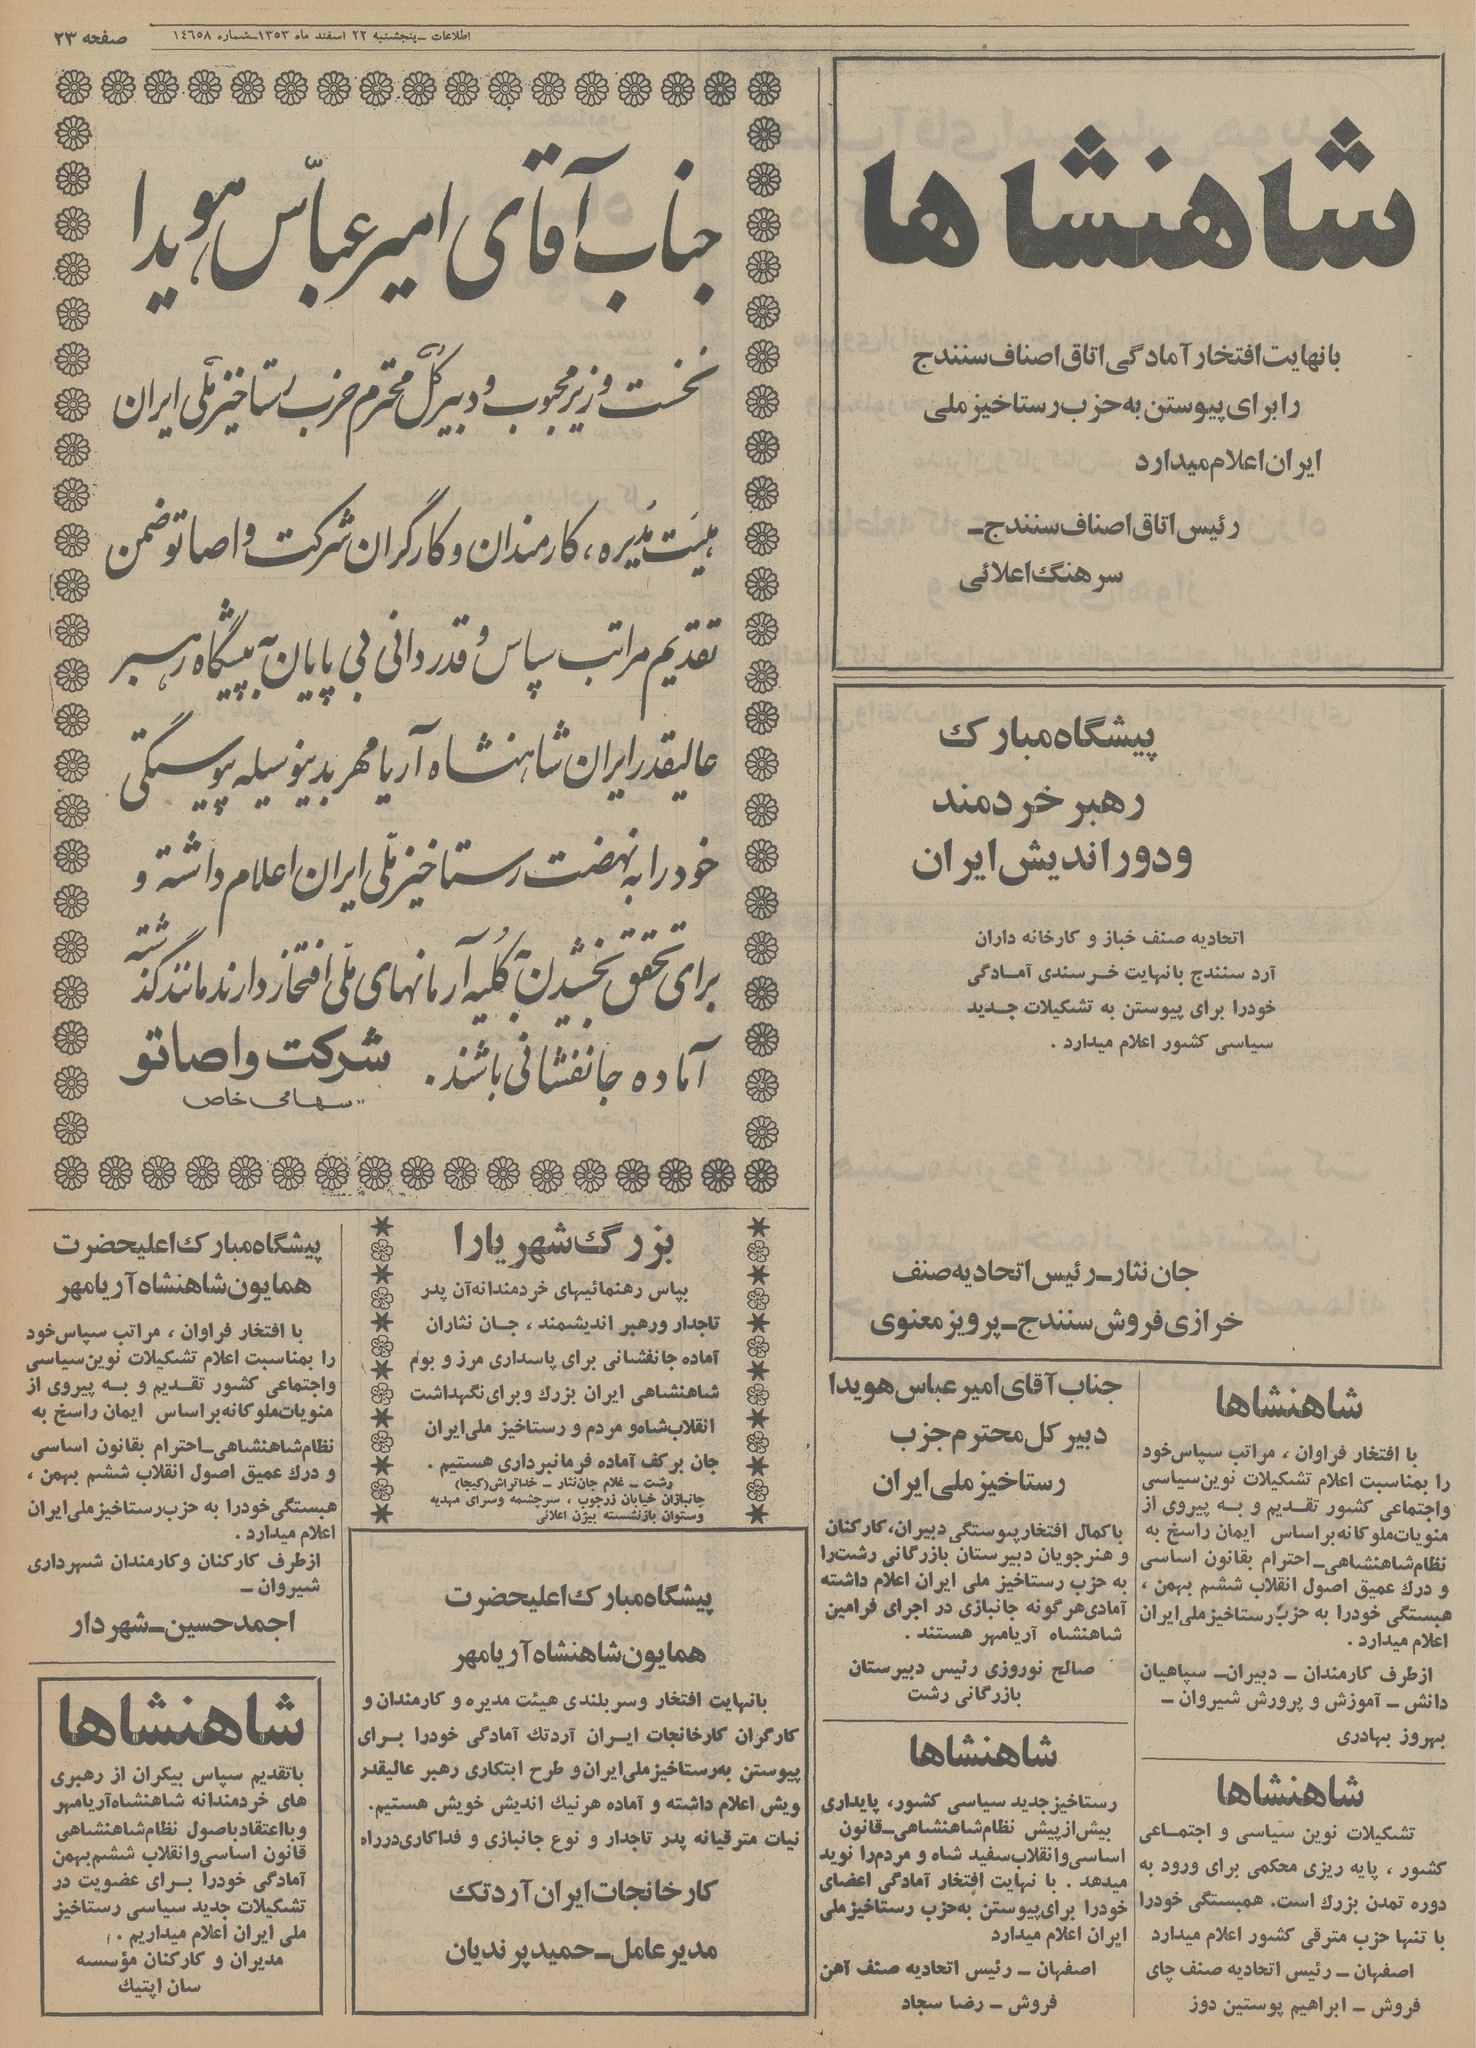 اطلاعات ـ پنجشنبه ۲۲ اسفند ماه ۱۳۵۳ـ شماره ۱٤٦٥۸
صفحه ۲۳
شاهنشاها
بانهایت افتخار آمادگی اتاق اصناف سنندج
را برای پیوستن به حزب رستاخیز ملی
ایران اعلام میدارد
رئیس اتاق اصناف سنندج ـ
سرهنگ اعلائی
پیشگاه مبارک
رهبر خردمند
و دوراندیش ایران
اتحادیه صنف خباز و کارخانه داران
آرد سنندج بانهایت خرسندی آمادگی
خودرا برای پیوستن به تشکیلات جدید
سیاسی کشور اعلام میدارد .
جان نثار ـ رئیس اتحادیه صنف
خرازی فروش سنندج ـ پرویز معنوی
جناب آقای امیر عباس هویدا
نخست وزیر محبوب و دبیر کل محترم حزب رستاخیز ملی ایران
هیئت مدیره ، کارمندان و کارگران شرکت واصاتو ضمن
تقدیم مراتب سپاس و قدردانی بی پایان به پیشگاه رهبر
عالیقدر ایران شاهنشاه آریامهر بدینوسیله پیوستگی
خود را به نهضت رستاخیز ملی ایران اعلام داشته و
برای تحقق بخشیدن به کلیه آرمانهای ملی افتخار دارند مانند گذشته
آماده جانفشانی باشند .
شرکت واصاتو
سهامی خاص
شاهنشاها
با افتخار فراوان ، مراتب سپاس خود
را بمناسبت اعلام تشکیلات نوین سیاسی
واجتماعی کشور تقدیم و به پیروی از
منویات ملوکانه بر اساس ایمان راسخ به
نظام شاهنشاهی ـ احترام بقانون اساسی
و درک عمیق اصول انقلاب ششم بهمن ،
هبستگی خودرا به حزب رستاخیز ملی ایران
اعلام میدارد .
از طرف کارمندان ـ دبیران ـ سپاهیان
دانش ـ آموزش و پرورش شیروان ـ
بهروز بهادری
شاهنشاها
تشکیلات نوین سیاسی و اجتماعی
کشور ، پایه ریزی محکمی برای ورود به
دوره تمدن بزرک است. همبستگی خودرا
با تنها حزب مترقی کشور اعلام میدارد
اصفهان ـ رئیس اتحادیه صنف چای
فروش ـ ابراهیم پوستین دوز
جناب آقای امیر عباس هویدا
دبیر کل محترم حزب
رستاخیز ملی ایران
باکمال افتخار پیوستگی دبیران، کارکنان
و هنرجویان دبیرستان بازرگانی رشت را
به حزب رستاخیز ملی ایران اعلام داشته
آمادی هر گونه جانبازی در اجرای فرامین
شاهنشاه آریامهر هستند .
صالح نوروزی رئیس دبیرستان
بازرگانی رشت
شاهنشاها
رستاخیز جدید سیاسی کشور، پایداری
بیش از پیش نظام شاهنشاهی ـ قانون
اساسی و انقلاب سفید شاه و مردم را نوید
میدهد . با نهایت افتخار آمادگی اعضای
خودرا برای پیوستن به حزب رستاخیز ملی
ایران اعلام میدارد
اصفهان ـ رئیس اتحادیه صنف آهن
فروش ـ رضا سجاد
بزرگ شهریارا
بپاس رهنمائیهای خردمندانه آن پدر
تاجدار ورهبر اندیشمند ، جان نثاران
آماده جانفشانی برای پاسداری مرز و بوم
شاهنشاهی ایران بزرک وبرای نگهداشت
انقلاب شاه و مردم و رستاخیز ملی ایران
جان بر کف آماده فرمانبرداری هستیم .
رشت ـ غلام جان نثار ـ خداتراش (کیجا)
جانبازان خیابان زرجوب ، سرچشمه وسرای مهدیه
وستوان بازنشسته بیژن اعلائی
پیشگاه مبارک اعلیحضرت
همایون شاهنشاه آریامهر
بانهایت افتخار وسربلندی هیئت مدیره و کارمندان و
کارگران کارخانجات ایران آردتک آمادگی خودرا برای
پیوستن به رستاخیز ملی ایران و طرح ابتکاری رهبر عالیقدر
ویش اعلام داشته و آماده هر نیک اندیش خویش هستیم.
نیات مترقیانه پدر تاجدار و نوع جانبازی و فداکاری در راه
کارخانجات ایران آردتک
مدیر عامل ـ حمید پرندیان
پیشگاه مبارک اعلیحضرت
همایون شاهنشاه آریامهر
با افتخار فراوان ، مراتب سپاس خود
را بمناسبت اعلام تشکیلات نوین سیاسی
واجتماعی کشور تقدیم و به پیروی از
منویات ملوکانه بر اساس ایمان راسخ به
نظام شاهنشاهی ـ احترام بقانون اساسی
و درک عمیق اصول انقلاب ششم بهمن ،
هبستگی خودرا به حزب رستاخیز ملی ایران
اعلام میدارد .
از طرف کارکنان وکارمندان شهرداری
شیروان ـ
احمدحسین ـ شهردار
شاهنشاها
باتقدیم سپاس بیکران از رهبری
های خردمندانه شاهنشاه آریامهر
وبااعتقاد باصول نظام شاهنشاهی
قانون اساسی وانقلاب ششم بهمن
آمادگی خودرا برای عضویت در
تشکیلات جدید سیاسی رستاخیز
ملی ایران اعلام میداریم .
مدیران و کارکنان مؤسسه
سان اپتیک